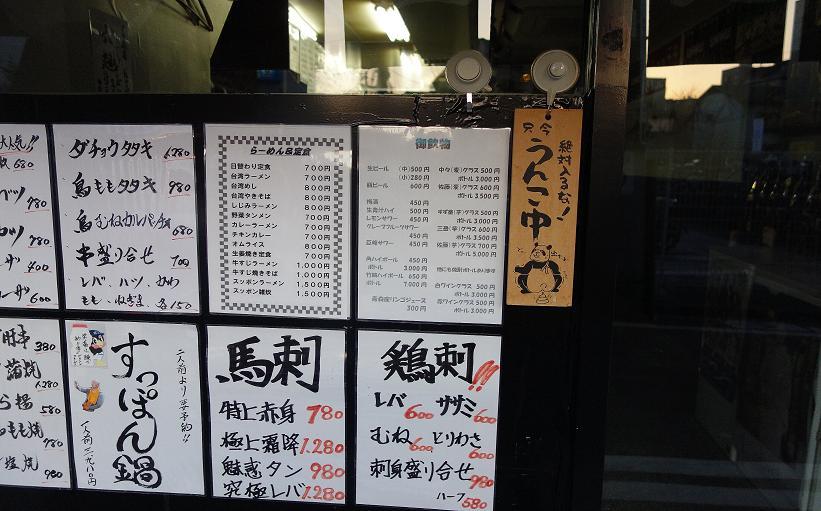 大人気!!
680
980
980
400
600
ダチョウタタキ 1.280
鳥ももタタキ 980
鳥むねカルパッチョ 680
串盛り合せ 700
レバ、ハツ、かわ
もも、ねぎま、各150
らーめん&定食
日替わり定食 700円
台湾ラーメン 700円
台湾めし 800円
台湾やきそば 800円
しじみラーメン 800円
野菜タンメン 700円
カレーラーメン 700円
チキンカレー 700円
オムライス 800円
生姜焼き定食 700円
牛すじラーメン 1,000円
牛すじ焼きそば 1,000円
スッポンラーメン 1,500円
スッポン雑炊 1,500円
御飲物
生ビール (中) 500円
(小) 280円
瓶ビール 600円
梅酒 450円
生青汁ハイ 500円
レモンサワー 450円
グレープフルーツサワー 450円
巨峰サワー 450円
角ハイボール 450円
ボトル 3.000円
竹鶴ハイボール 650円
ボトル 7.000円
青森産リンゴジュース
300円
中々(麦)グラス 500円
ボトル 3.000円
佐藤(麦)グラス 600円
ボトル 3.500円
ボトル 3.000円
三岳(芋)グラス 600円
ボトル 3.500円
佐藤(芋)グラス 700円
ボトル 5.000円
他にも焼酎ボトルあります
白ワイングラス 500円
ボトル 3.000円
赤ワイングラス 500円
ボトル 3.000円
只今
うんこ中
絶対入るな!
380
蒲焼 1.280
580
もも焼 980
塩焼 980
すっぽん鍋
二人前より要予約!!
馬刺
特上赤身 780
極上霜降 1.280
魅惑タン 980
究極レバ 1.280
鶏刺!!
レバ 600 ササミ 600
むね 600 とりわさ 600
刺身盛り合せ 980
ハーフ 580